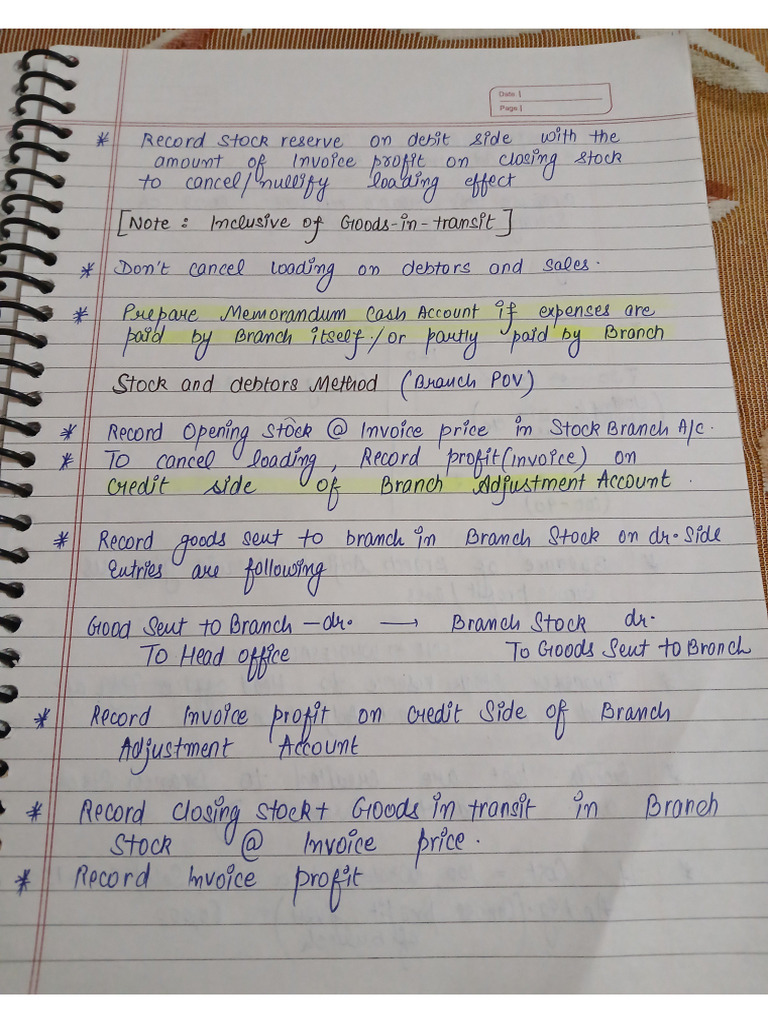 Date |
Page |
* Record stock reserve on debit side with the
amount of invoice profit on closing stock
to cancel/nullify loading effect
[Note : Inclusive of Goods-in-transit]
* Don't cancel loading on debtors and sales.
* Prepare Memorandum Cash Account if expenses are
paid by Branch itself/or partly paid by Branch
Stock and debtors Method (Branch POV)
* Record Opening Stock @ Invoice price in Stock Branch A/c.
* To cancel loading, Record profit(invoice) on
credit side of Branch Adjustment Account.
* Record goods sent to branch in Branch Stock on dr. Side
Entries are following
Good Sent to Branch – dr. → Branch Stock dr.
To Head office To Goods Sent to Branch
* Record Invoice profit on Credit Side of Branch
Adjustment Account
* Record Closing Stock + Goods in transit in Branch
Stock @ Invoice price.
* Record Invoice profit